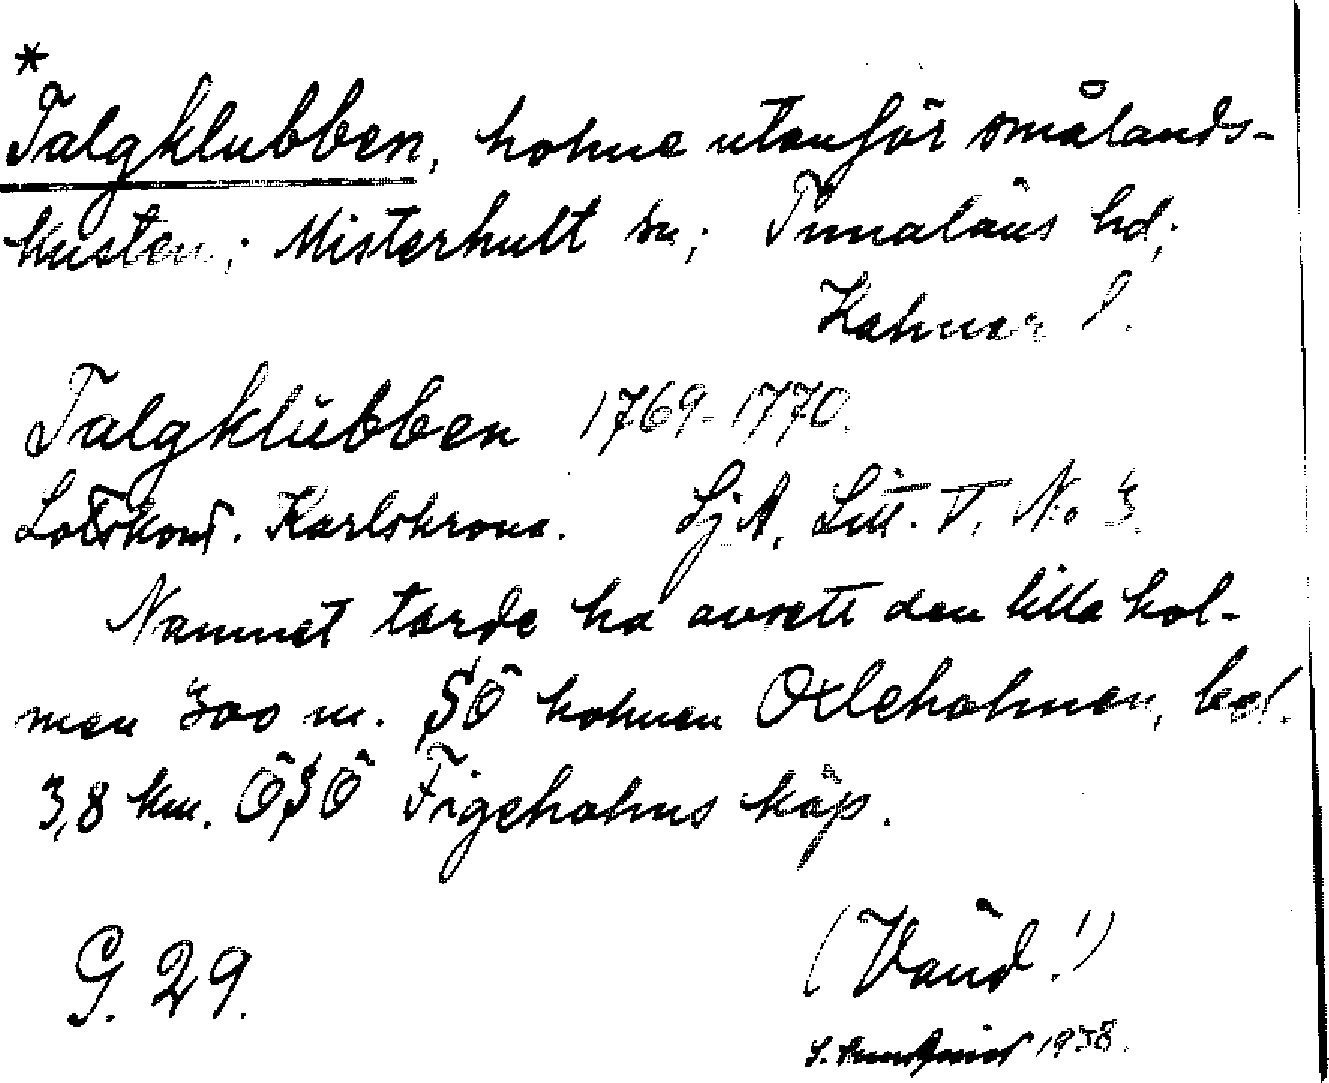 *
Talgklubben, holme utanför smålands-
kusten; Misterhult sn; Tunaläns hd;
Kalmar l.
Talgklübben 1769-1770.
Lotskont. Karlskrona. SjA, Litt. T, No 3.
Namnet torde ha avsett den lilla hol-
men 300 m. SÖ holmen Oxleholmen, bel.
3,8 km. ÖSÖ Figeholms köp.
(Vänd!)
G. 29.
1938.